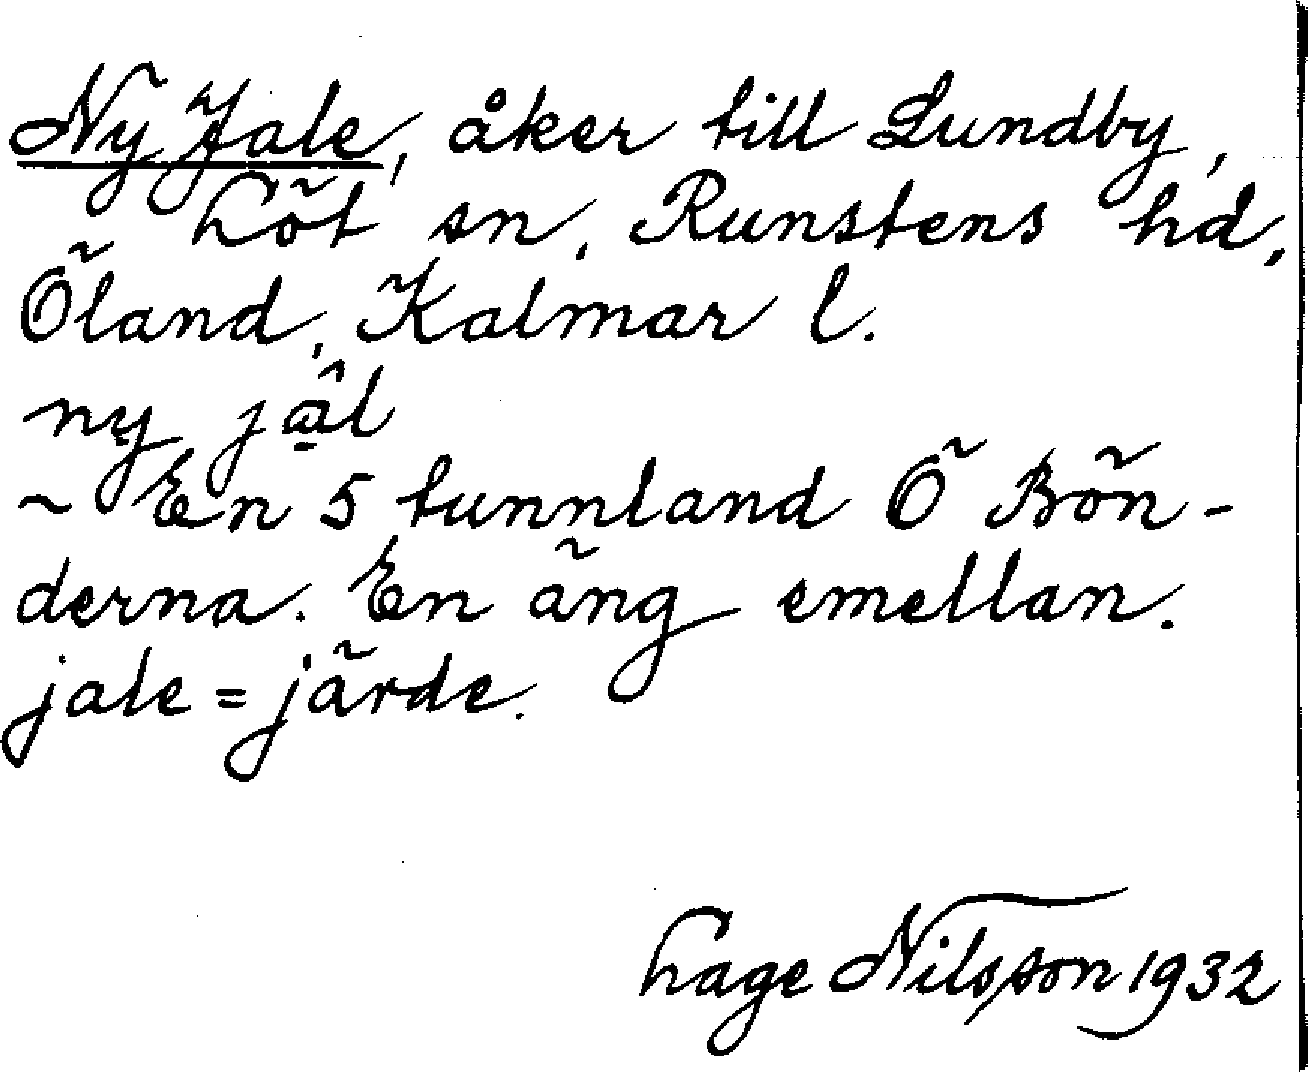 Ny Jale, åker till Lundby,
Löt sn, Runstens hd,
Öland, Kalmar l.
ny jâ̱l
~ En 5 tunnland Ö Bön-
derna. En äng emellan.
jale = järde.
Lage Nilsson 1932